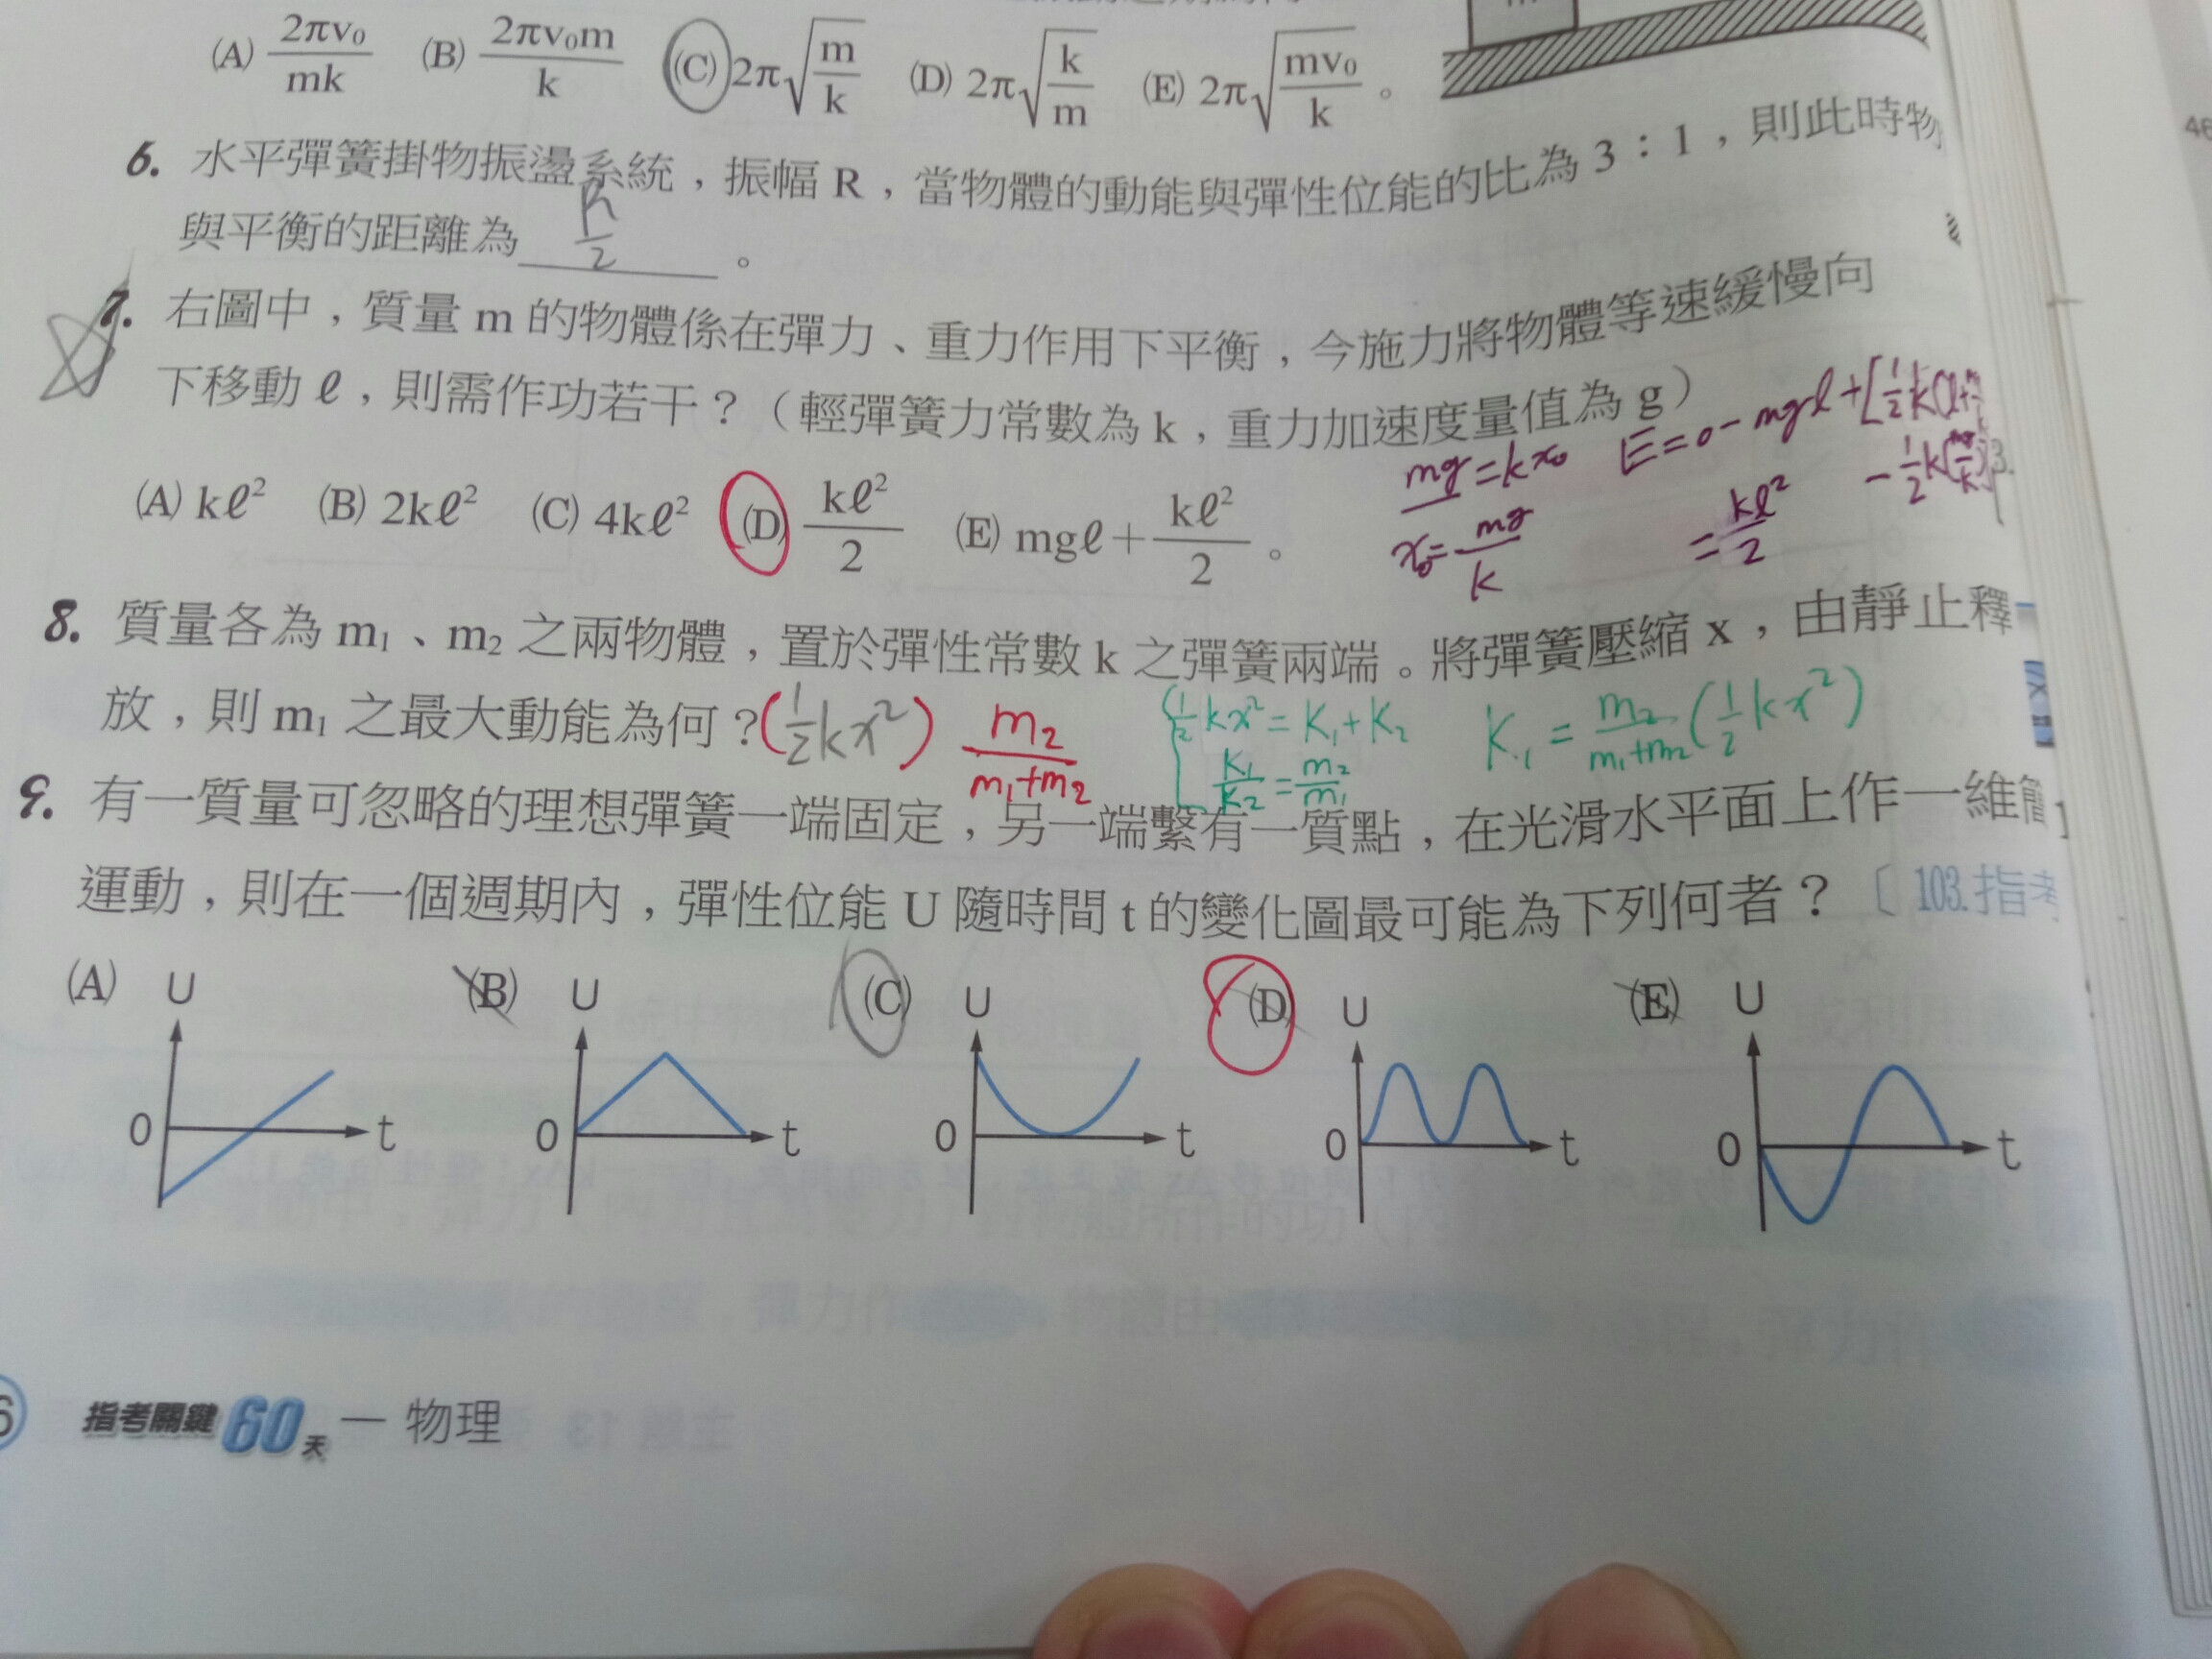 (A) 2πv₀/mk (B) 2πv₀m/k (C) 2π√(m/k) (D) 2π√(k/m) (E) 2π√(mv₀/k) 。
6. 水平彈簧掛物振盪系統，振幅 R，當物體的動能與彈性位能的比為 3：1，則此時物
與平衡的距離為 R/2 。
7. 右圖中，質量 m 的物體係在彈力、重力作用下平衡，今施力將物體等速緩慢向
下移動 ℓ，則需作功若干？（輕彈簧力常數為 k，重力加速度量值為 g）
mg=kx₀
x₀=mg/k
E=0-mgl+[½k(l+
-½k(mg/k)
=kl²/2
3.
(A) kℓ² (B) 2kℓ² (C) 4kℓ² (D) kℓ²/2 (E) mgℓ＋kℓ²/2 。
8. 質量各為 m₁、m₂ 之兩物體，置於彈性常數 k 之彈簧兩端。將彈簧壓縮 x，由靜止釋
放，則 m₁ 之最大動能為何？(½kx²) m₂/(m₁+m₂)
{½kx²=K₁+K₂
K₁/K₂=m₂/m₁
K₁=m₂/(m₁+m₂)(½kx²)
9. 有一質量可忽略的理想彈簧一端固定，另一端繫有一質點，在光滑水平面上作一維
運動，則在一個週期內，彈性位能 U 隨時間 t 的變化圖最可能為下列何者？〔103.指考
(A) U 0 t
(B) U 0 t
(C) U 0 t
(D) U 0 t
(E) U 0 t
6 指考關鍵60天 — 物理
46